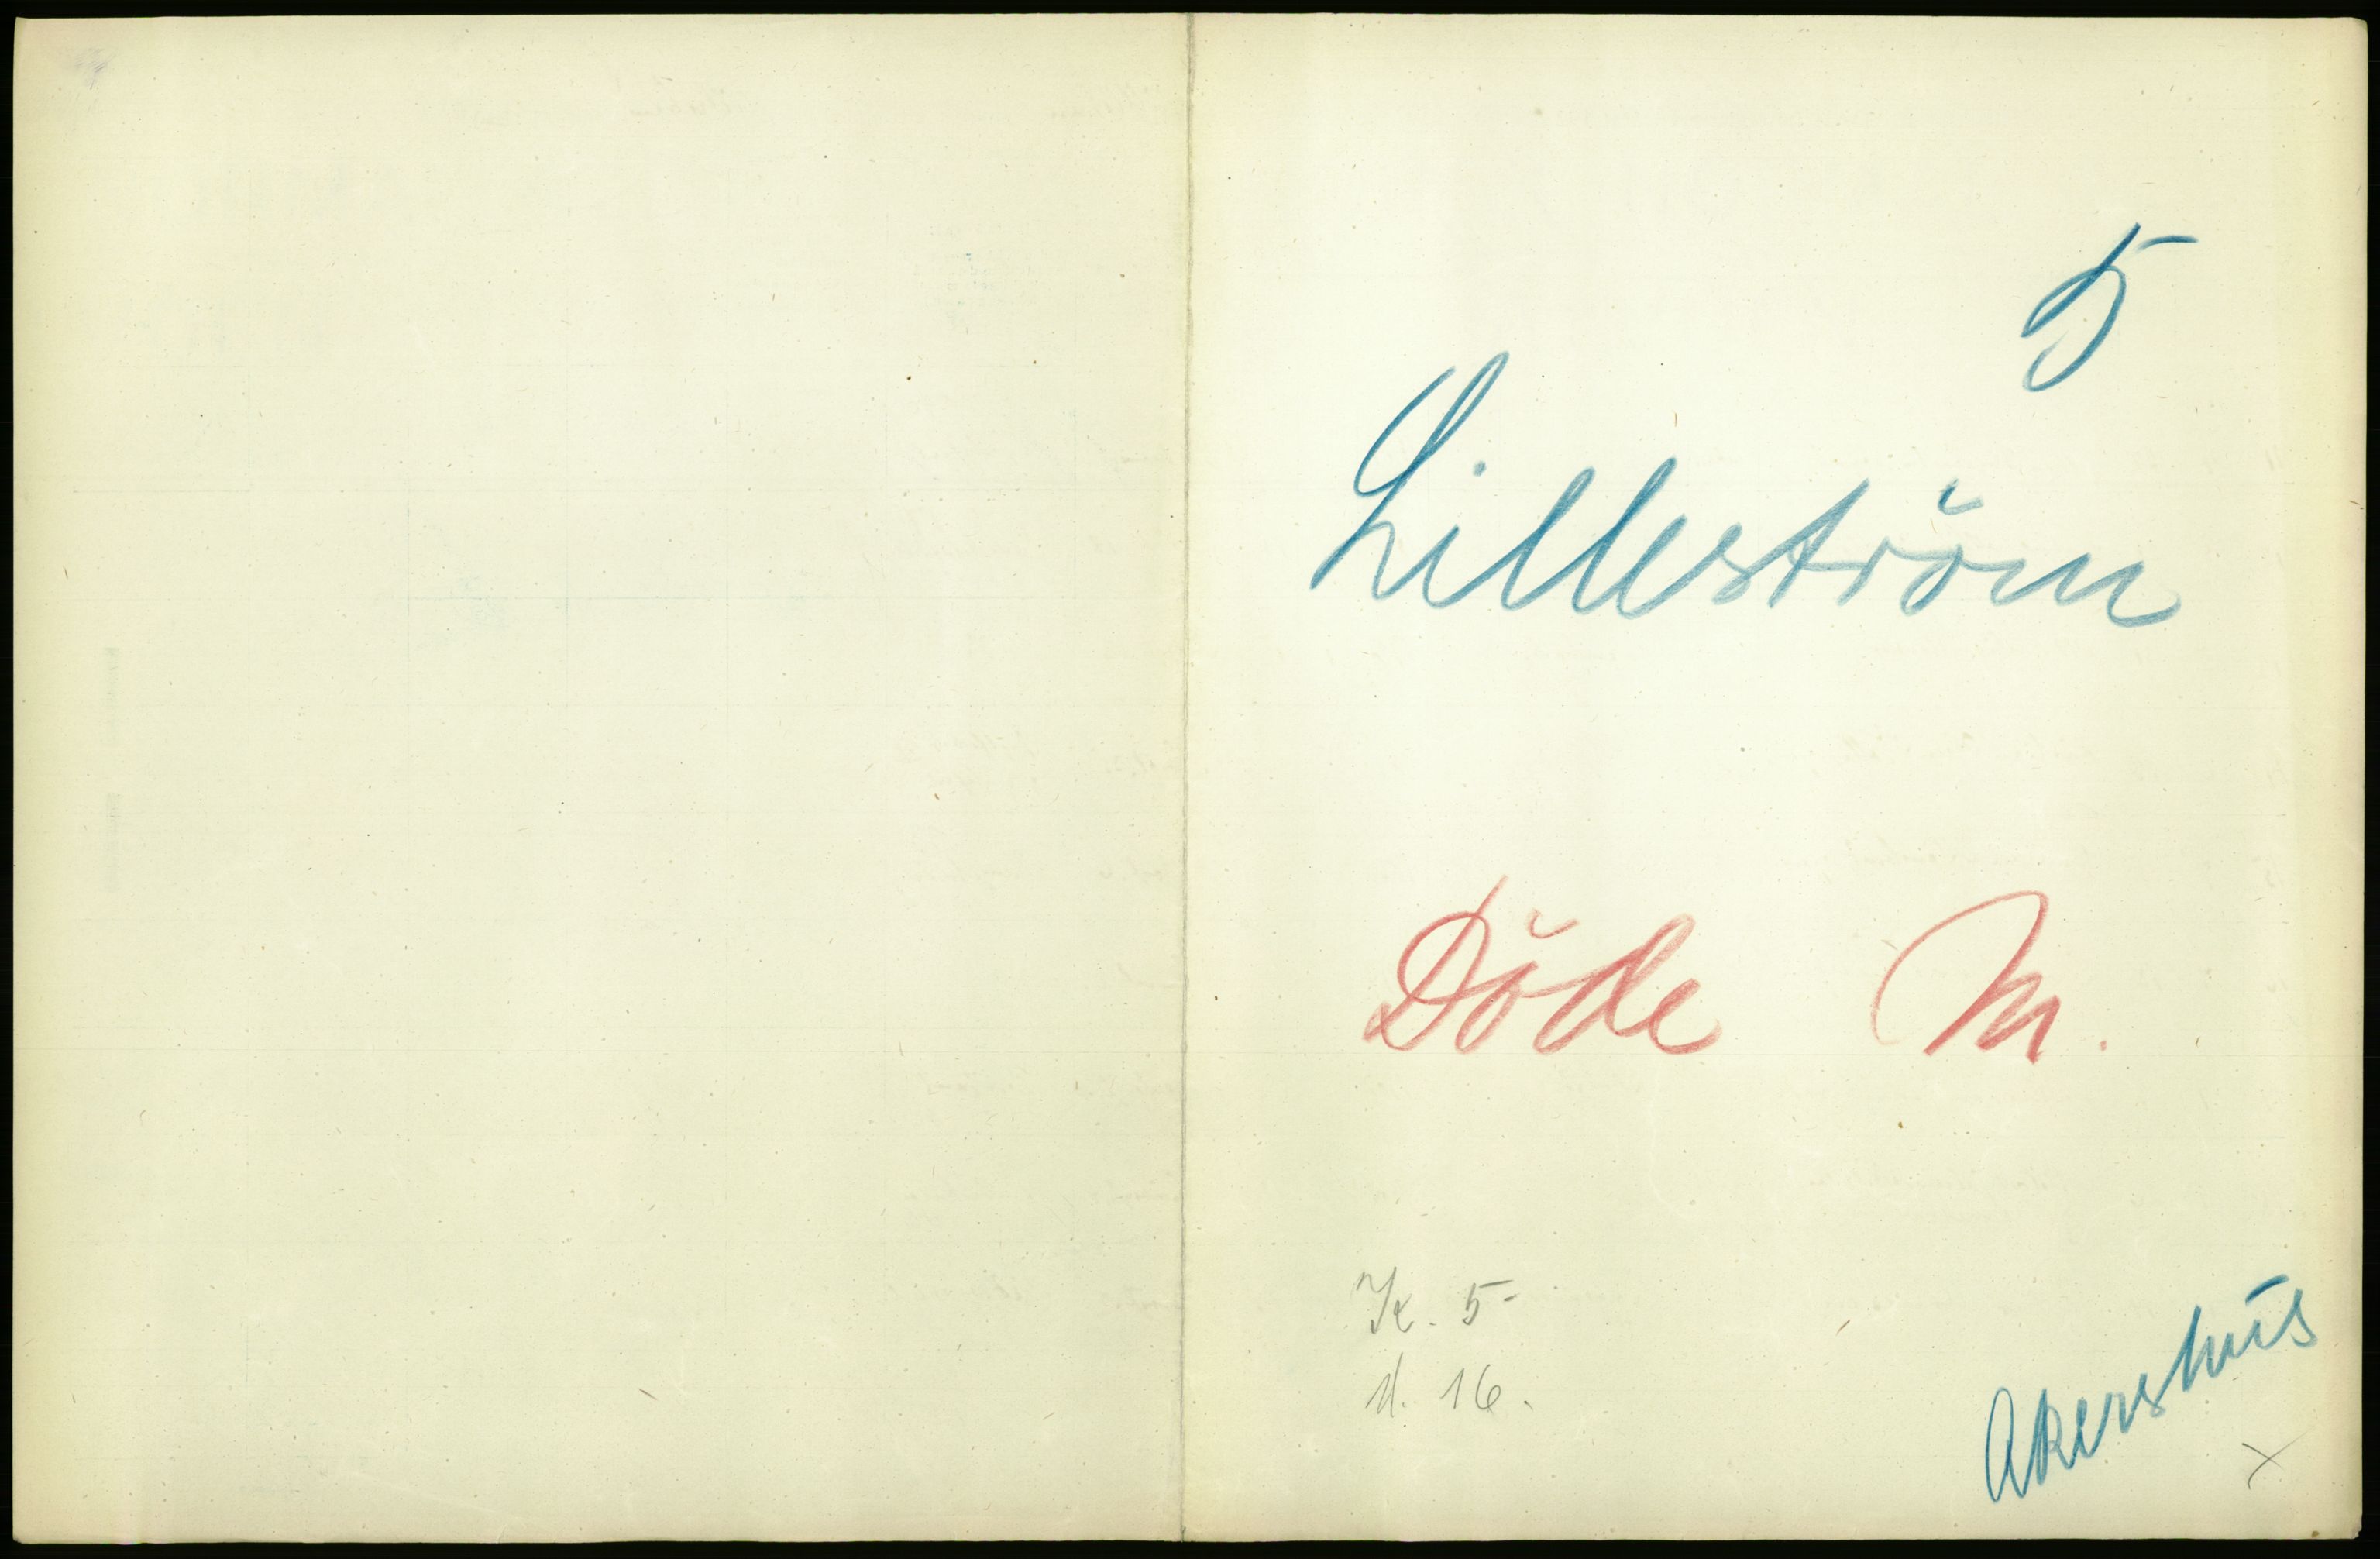 5
Lilleström
Döde M.
K. 5
d. 16.
Akershus
x